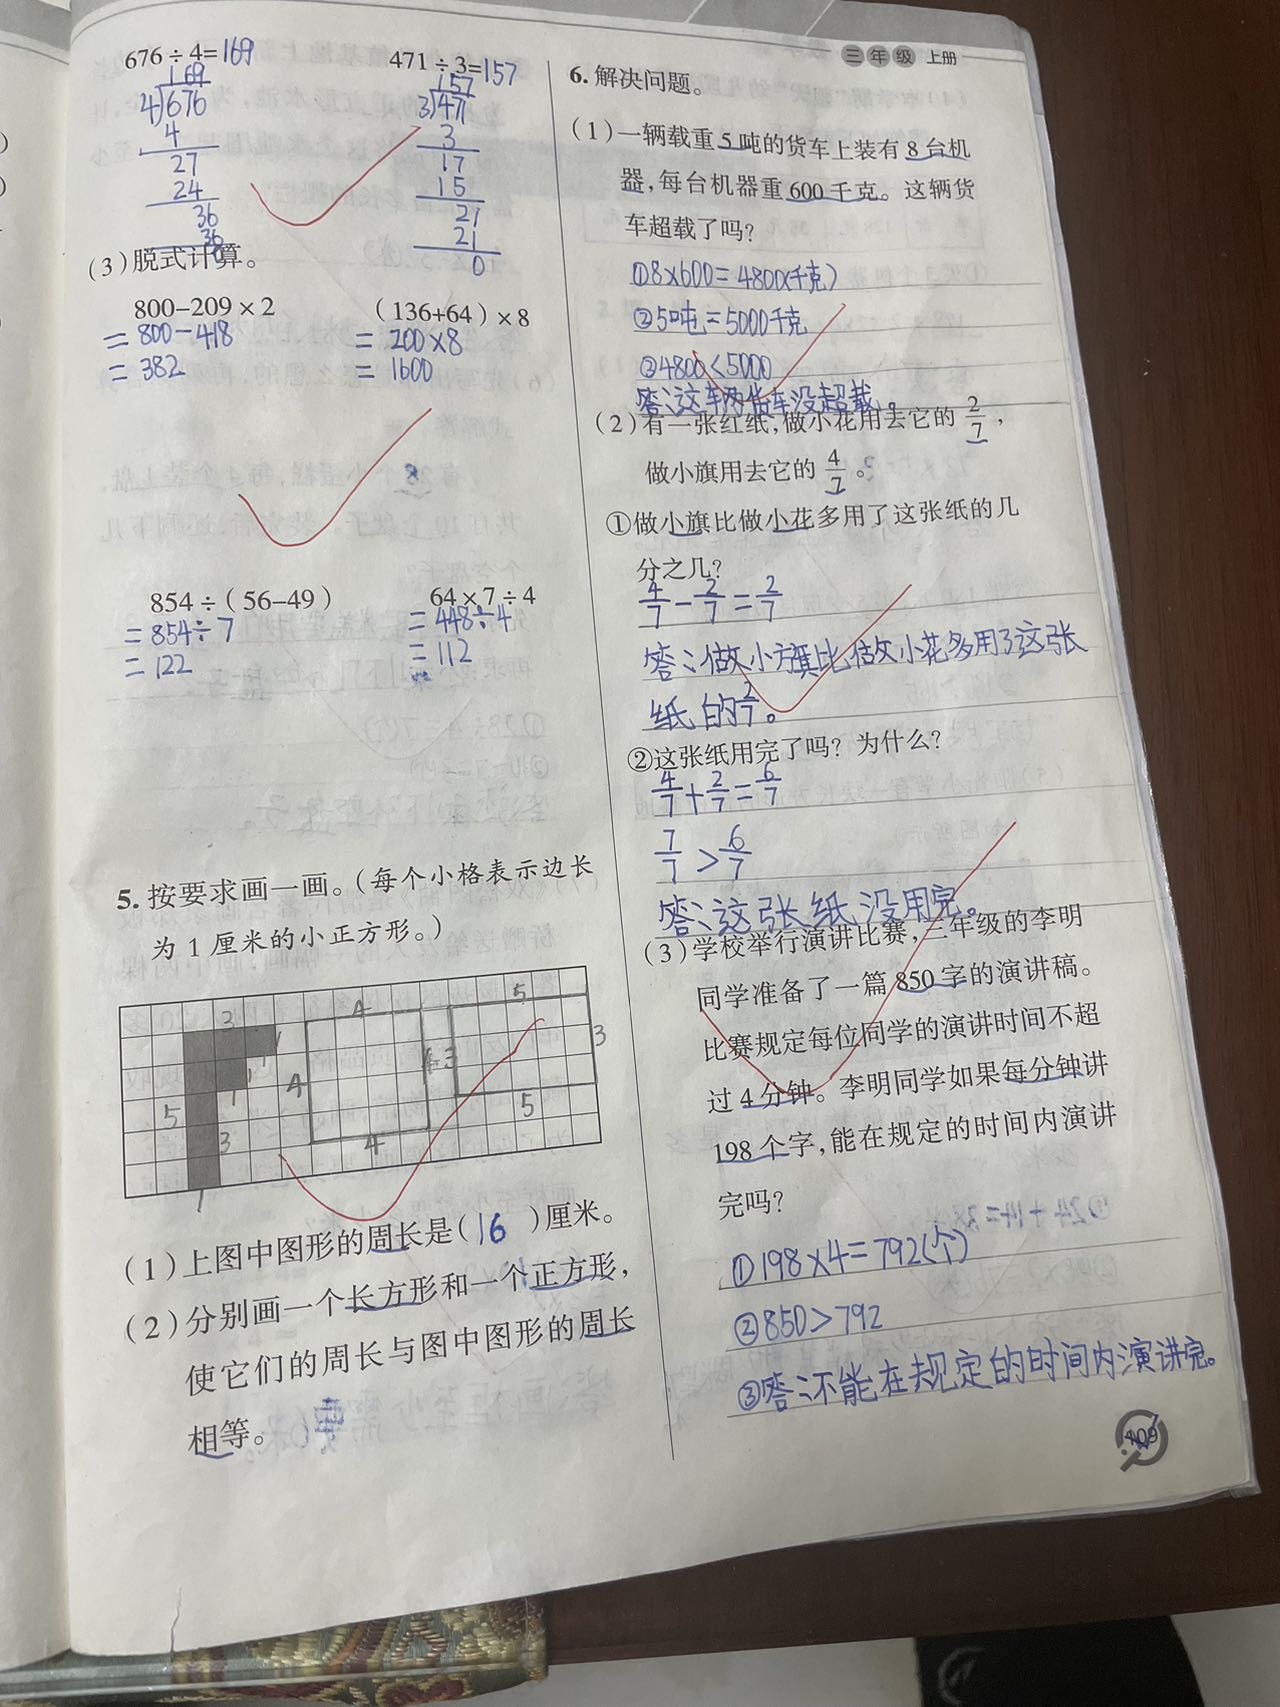 三年级 上册
676÷4=169
169
4)676
4
27
24
36
36
0
471÷3=157
157
3)471
3
17
15
21
21
0
(3)脱式计算。
800-209×2
=800-418
=382
(136+64)×8
=200×8
=1600
854÷(56-49)
=854÷7
=122
64×7÷4
=448÷4
=112
5.按要求画一画。(每个小格表示边长
为1厘米的小正方形。)
3
1
1
1
1
5
3
1
4
4
4
4
5
3
3
5
(1)上图中图形的周长是(16)厘米。
(2)分别画一个长方形和一个正方形,
使它们的周长与图中图形的周长
相等。
6.解决问题。
(1)一辆载重5吨的货车上装有8台机
器,每台机器重600千克。这辆货
车超载了吗?
①8×600=4800(千克)
②5吨=5000千克
③4800<5000
答:这辆货车没超载。
(2)有一张红纸,做小花用去它的2/7,
做小旗用去它的4/7。
①做小旗比做小花多用了这张纸的几
分之几?
4/7-2/7=2/7
答:做小旗比做小花多用了这张
纸的2/7。
②这张纸用完了吗?为什么?
4/7+2/7=6/7
7/7>6/7
答:这张纸没用完。
(3)学校举行演讲比赛,三年级的李明
同学准备了一篇850字的演讲稿。
比赛规定每位同学的演讲时间不超
过4分钟。李明同学如果每分钟讲
198个字,能在规定的时间内演讲
完吗?
①198×4=792(个)
②850>792
③答:不能在规定的时间内演讲完。
109